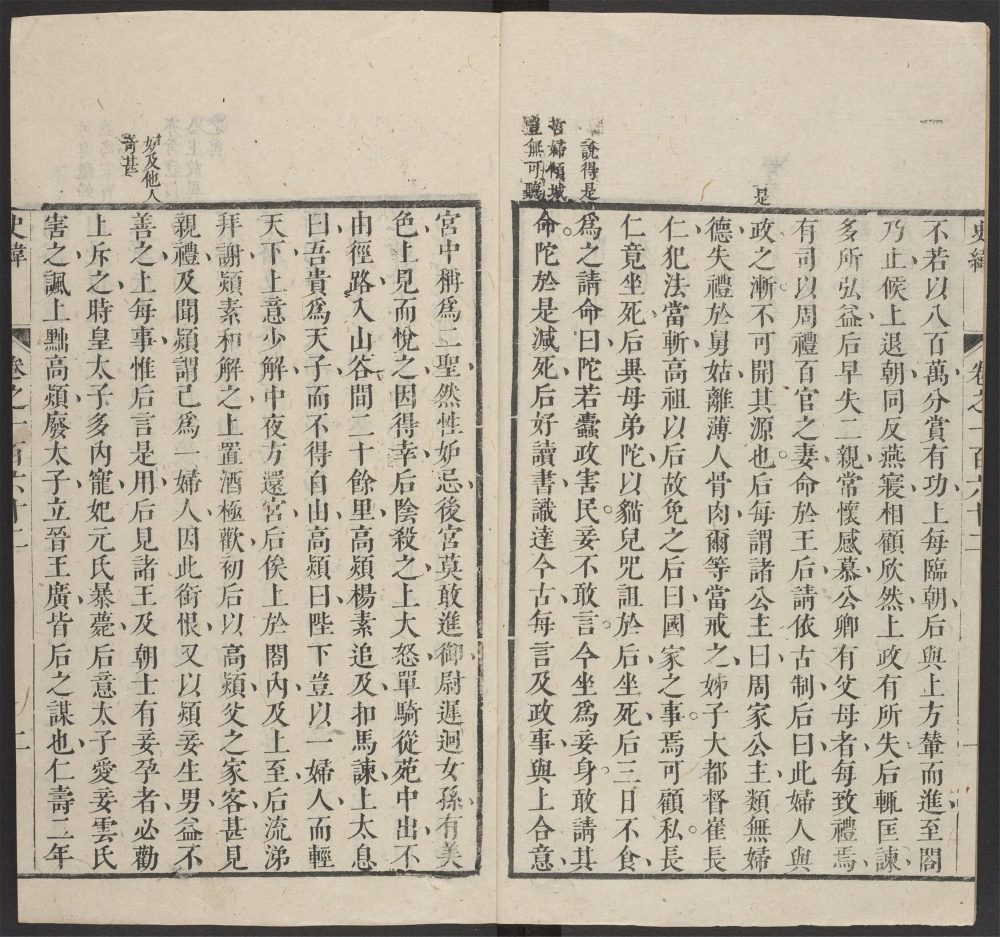 史緯
卷之一百六十二
不若以八百萬分賞有功上每臨朝后與上方輦而進至閤
乃止候上退朝同反燕寢相顧欣然上政有所失后輒匡諫
多所弘益后早失二親常懷感慕公卿有父母者每致禮焉
有司以周禮百官之妻命於王后請依古制后曰此婦人與
政之漸不可開其源也后每謂諸公主曰周家公主類無婦
德失禮於舅姑離薄人骨肉爾等當戒之姊子大都督崔長
仁犯法當斬高祖以后故免之后曰國家之事焉可顧私長
仁竟坐死后異母弟陀以貓鬼咒詛於后坐死后三日不食
爲之請命曰陀若蠹政害民妾不敢言今坐爲妾身敢請其
命陀於是減死后好讀書識達今古每言及政事與上合意
是
說得是
哲婦傾城
豈無可聽
宮中稱爲二聖然性妒忌後宮莫敢進御尉遲迥女孫有美
色上見而悅之因得幸后陰殺之上大怒單騎從苑中出不
由徑路入山谷間二十餘里高熲楊素追及扣馬諫上太息
曰吾貴爲天子而不得自由高熲曰陛下豈以一婦人而輕
天下上意少解中夜方還宮后俟上於閤內及上至后流涕
拜謝熲素和解之上置酒極歡初后以高熲父之家客甚見
親禮及聞熲謂己爲一婦人因此銜恨又以熲妾生男益不
善之上每事惟后言是用后見諸王及朝士有妾孕者必勸
上斥之時皇太子多內寵妃元氏暴薨后意太子愛妾雲氏
害之諷上黜高熲廢太子立晉王廣皆后之謀也仁壽二年
妒及他人
奇甚
史緯
卷之一百六十二
二